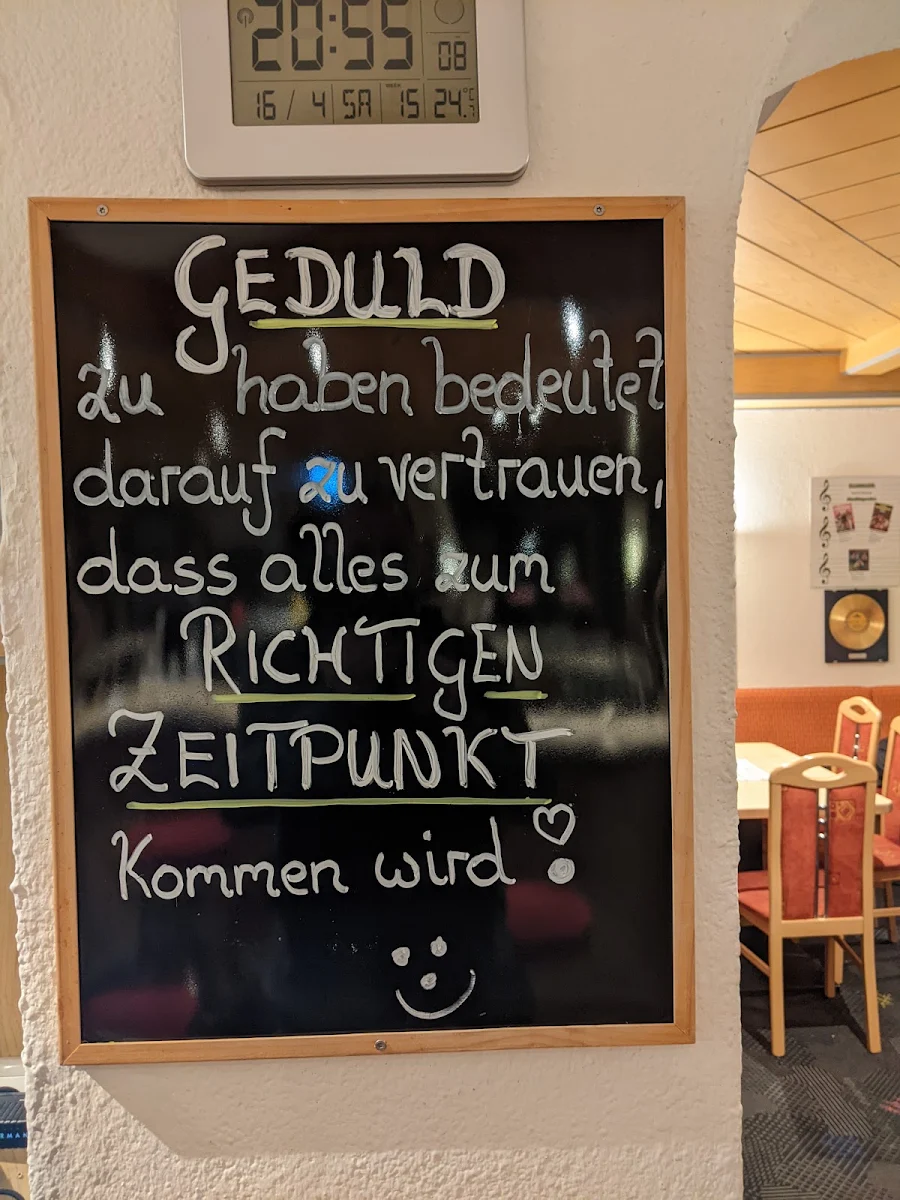 20:55 08
16/ 4 SA 15 24.7°C
GEDULD
zu haben bedeutet
darauf zu vertrauen,
dass alles zum
RICHTIGEN
ZEITPUNKT
Kommen wird